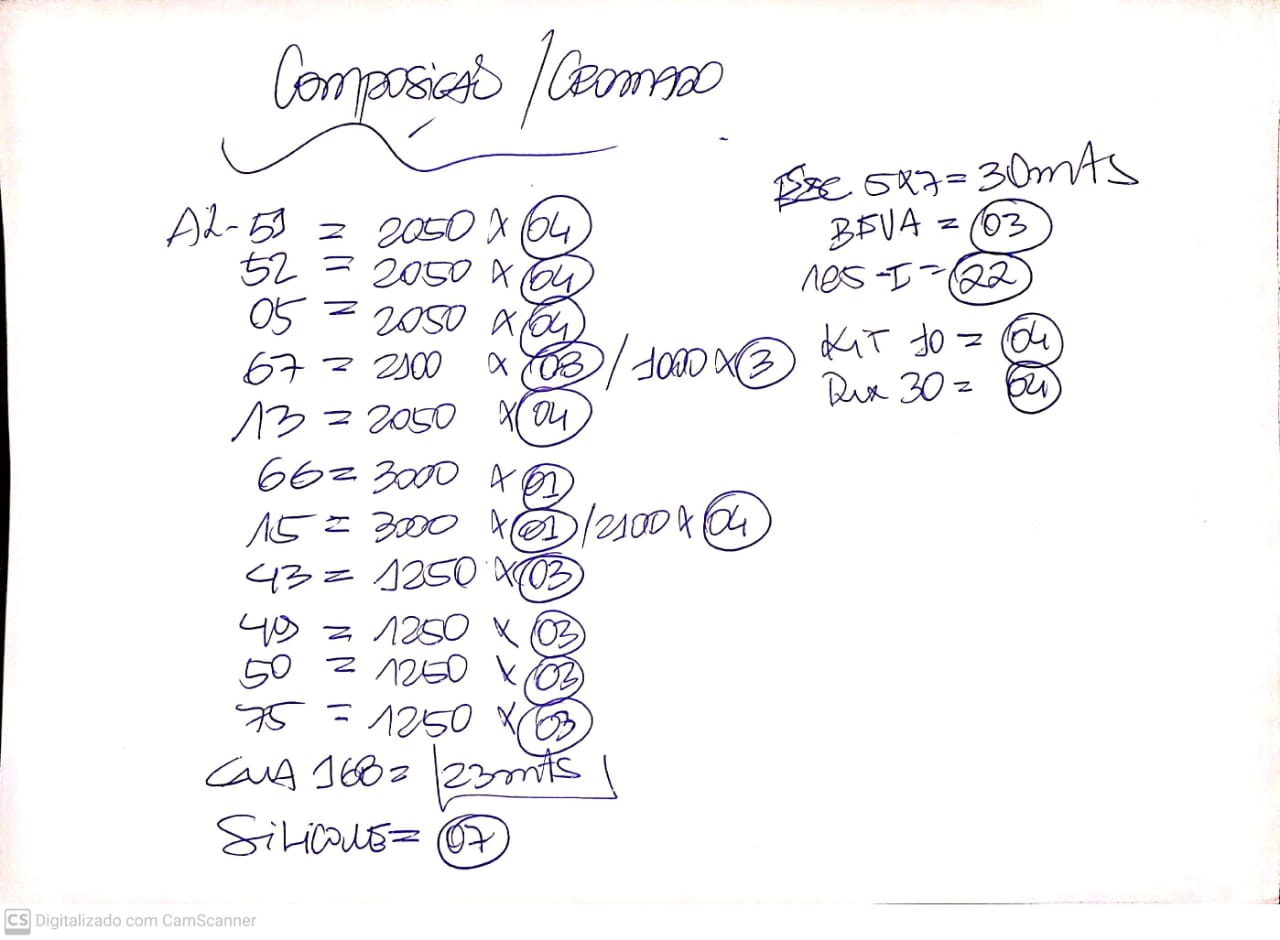 Composição / Cromado
AL-51 = 2050 x 04
52 = 2050 x 04
05 = 2050 x 04
67 = 2100 x 03 / 1000 x 3
13 = 2050 x 04
66 = 3000 x 01
15 = 3000 x 01 / 2100 x 04
43 = 1250 x 03
49 = 1250 x 03
50 = 1250 x 03
75 = 1250 x 03
168 = 23mts
Silicone = 07
5x7 = 30mts
= 03
185-I = 22
Kit 10 = 04
30 = 04
CS Digitalizado com CamScanner